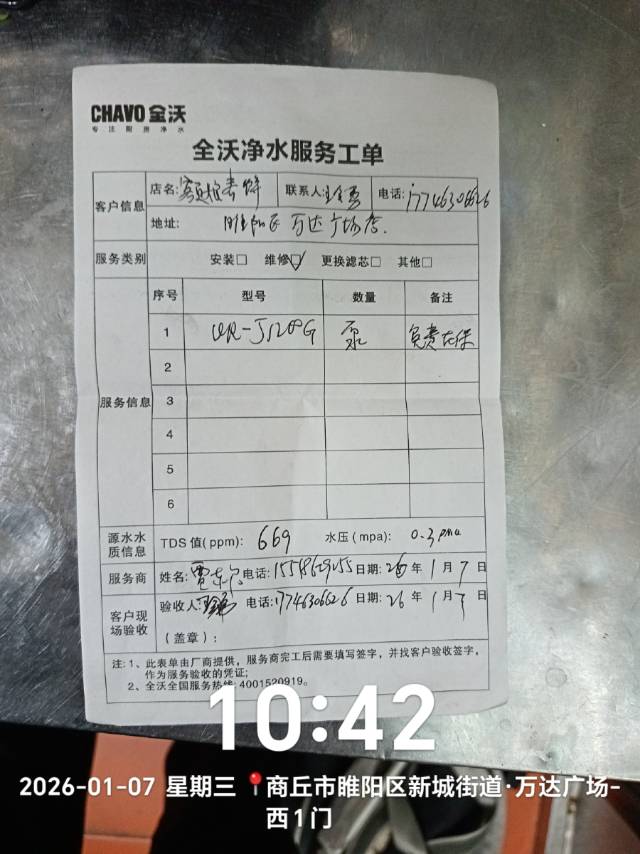 CHAVO 全沃
专注厨房净水
全沃净水服务工单
客户信息 店名: 联系人: 电话: 17746306626
地址: 睢阳区万达广场店.
服务类别 安装□ 维修☑ 更换滤芯□ 其他□
服务信息 序号 型号 数量 备注
1 UR-J1200G 泵 免费在保
2
3
4
5
6
源水水质信息 TDS 值(ppm): 669 水压(mpa): 0.3 pma
服务商 姓名: 电话: 日期: 26 年 1 月 7 日
客户现场验收 验收人: 电话: 17746306626 日期: 26 年 1 月 7 日
(盖章):
注: 1、此表单由厂商提供，服务商完工后需要填写签字，并找客户验收签字，
作为服务验收的凭证;
2、全沃全国服务热线: 4001520919。
10:42
2026-01-07 星期三 商丘市睢阳区新城街道·万达广场-
西1门